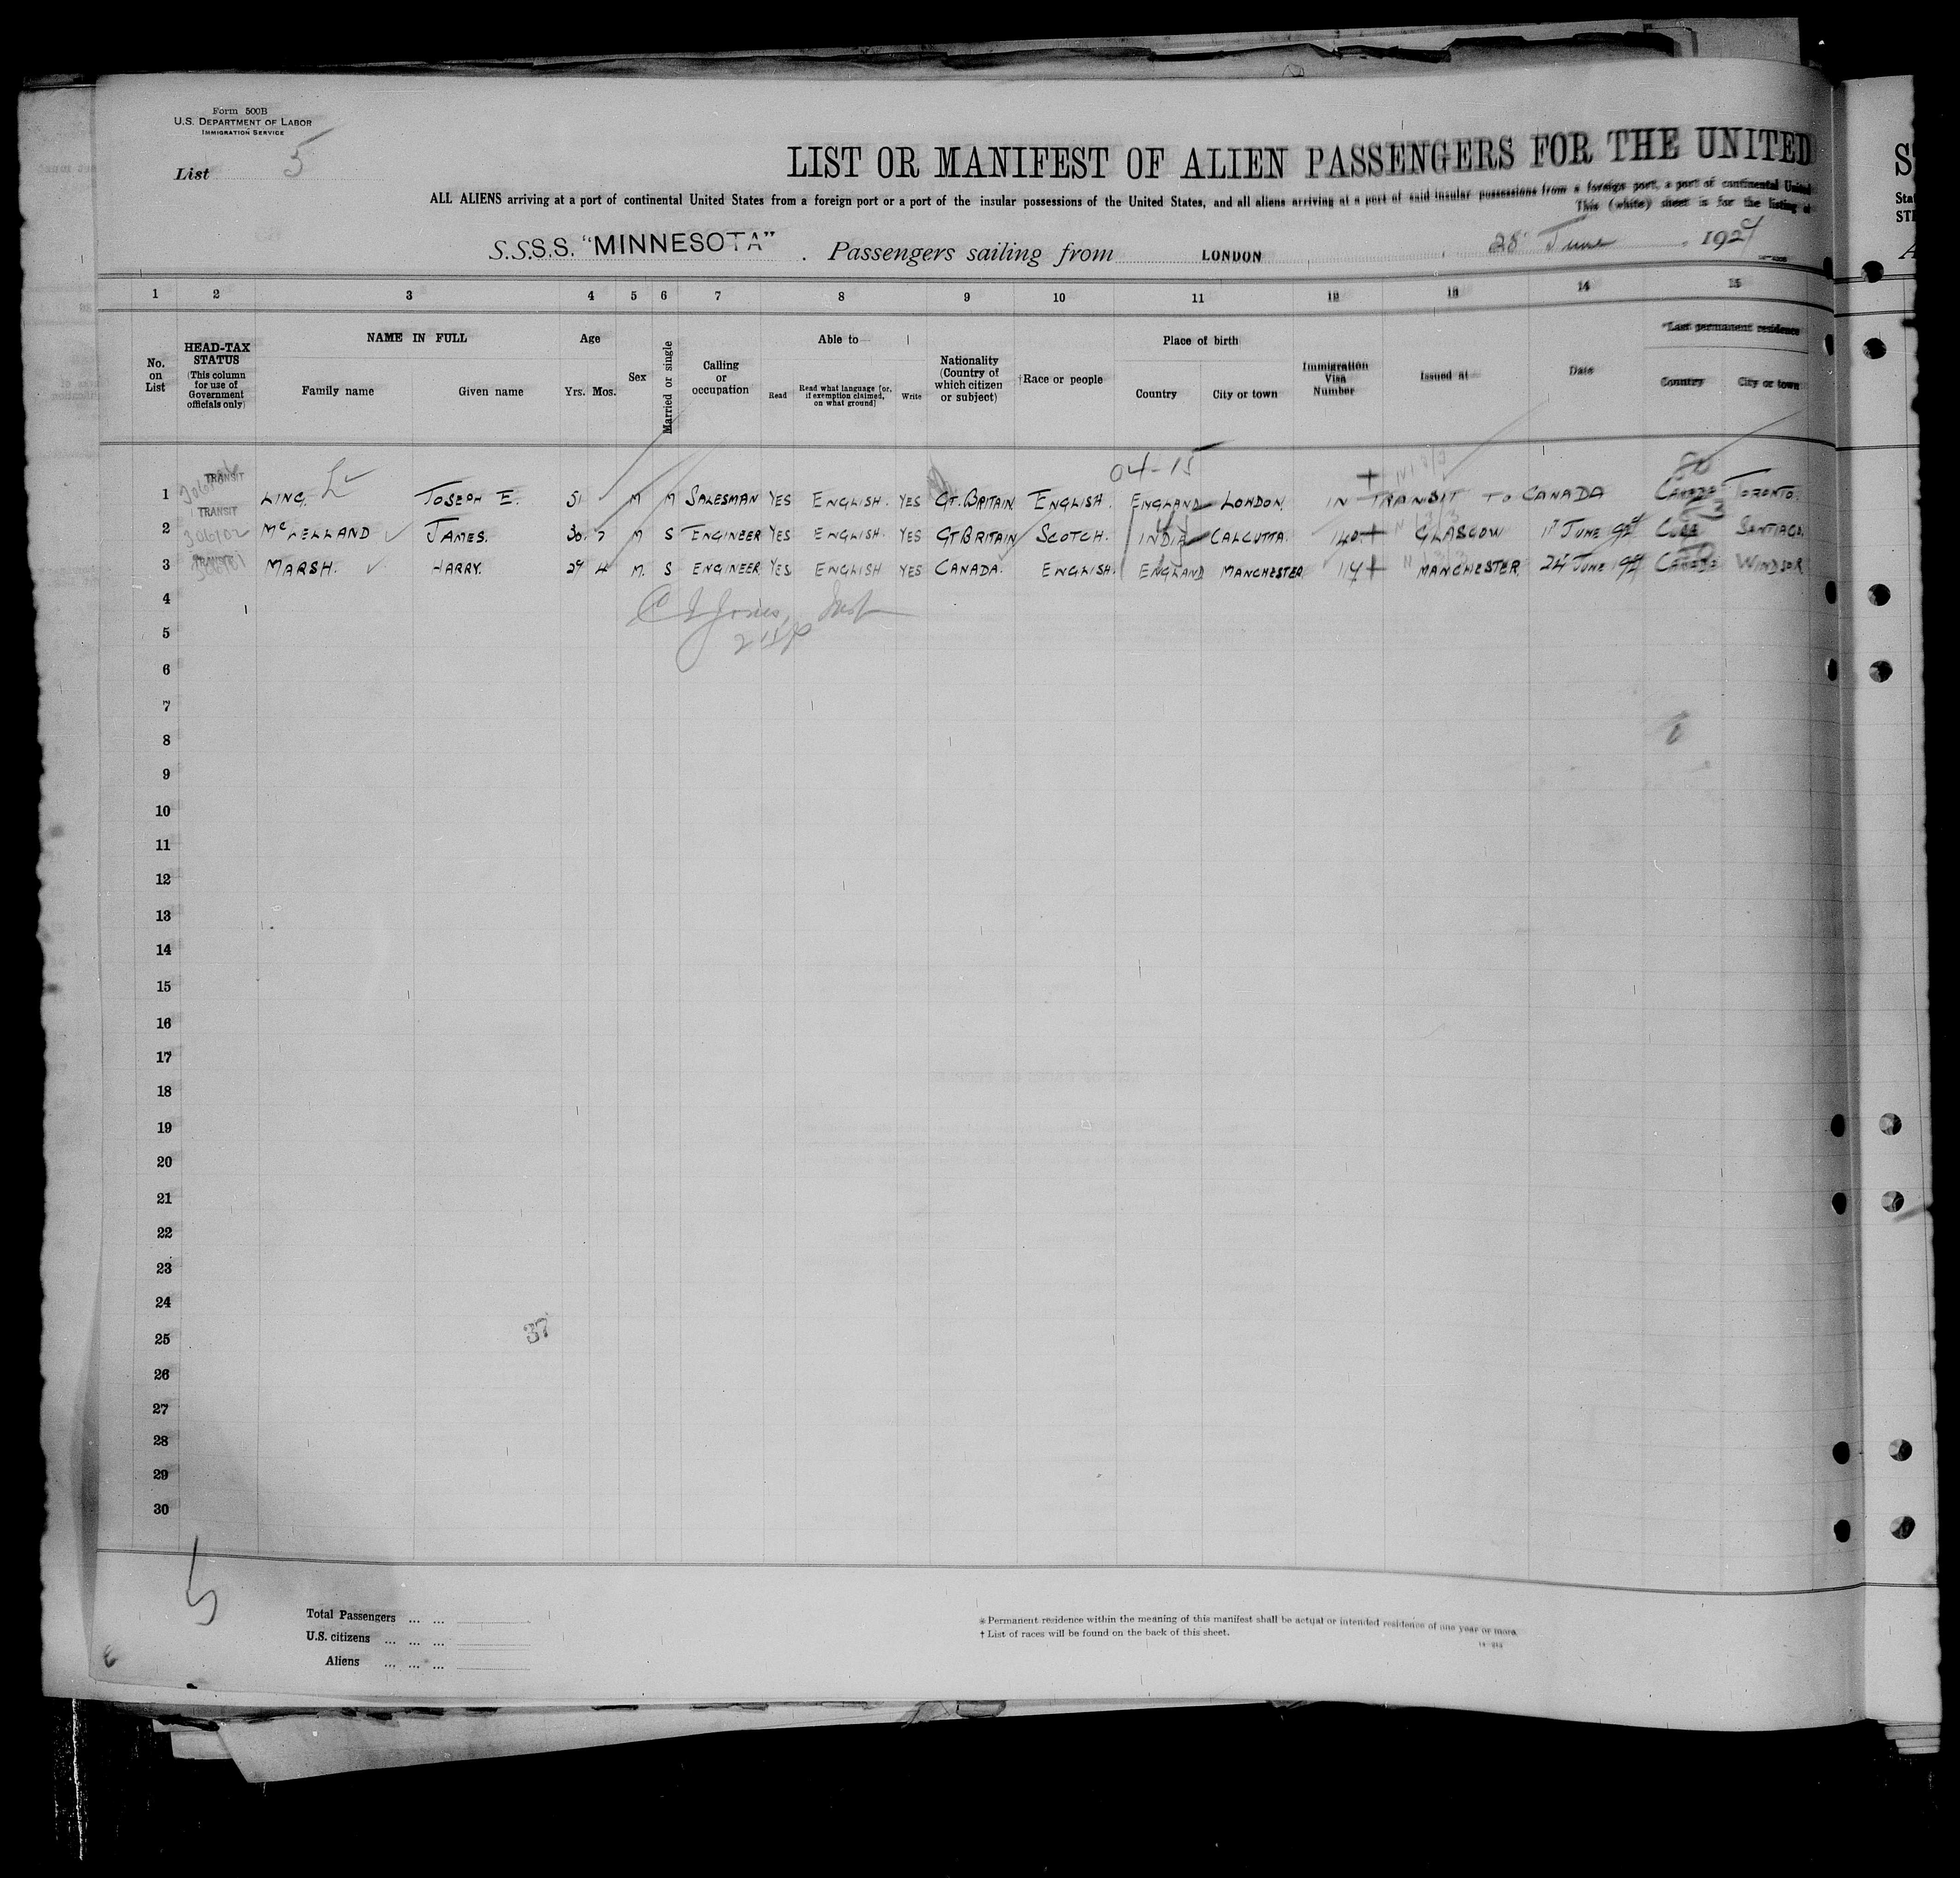 Form 500B
U.S. DEPARTMENT OF LABOR
IMMIGRATION SERVICE
List 5
LIST OR MANIFEST OF ALIEN PASSENGERS FOR THE UNITED
ALL ALIENS arriving at a port of continental United States from a foreign port or a port of the insular possessions of the United States, and all aliens arriving at a port of said insular possessions from a foreign port, a port of continental United
This (white) sheet is for the listing of
S.S. S.S. "MINNESOTA" . Passengers sailing from LONDON , 28 June , 1924
1 2 3 4 5 6 7 8 9 10 11 12 13 14 15
No. on List
HEAD-TAX STATUS (This column for use of Government officials only)
NAME IN FULL
Family name Given name
Age
Yrs. Mos.
Sex
Married or single
Calling or occupation
Able to
Read Read what language [or, if exemption claimed, on what ground] Write
Nationality (Country of which citizen or subject)
†Race or people
Place of birth
Country City or town
Immigration Visa Number
Issued at
Date
*Last permanent residence
Country City or town
04-15
1 TRANSIT LING. JOSEPH E. 51 M M SALESMAN YES ENGLISH. YES GT. BRITAIN ENGLISH. ENGLAND LONDON. IN TRANSIT TO CANADA CANADA TORONTO.
2 TRANSIT 306102 McLELLAND JAMES. 30 7 M S ENGINEER YES ENGLISH. YES GT BRITAIN SCOTCH. INDIA CALCUTTA. 140 GLASGOW JUNE CUBA SANTIAGO.
3 TRANSIT MARSH. HARRY. 29 4 M. S ENGINEER YES ENGLISH YES CANADA. ENGLISH. ENGLAND MANCHESTER. 114 MANCHESTER. 24 JUNE CANADA WINDSOR
4
5
6
7
8
9
10
11
12
13
14
15
16
17
18
19
20
21
22
23
24
25 37
26
27
28
29
30
5
Total Passengers ... ...
U.S. citizens ... ... ...
Aliens ... ... ...
* Permanent residence within the meaning of this manifest shall be actual or intended residence of one year or more.
† List of races will be found on the back of this sheet.